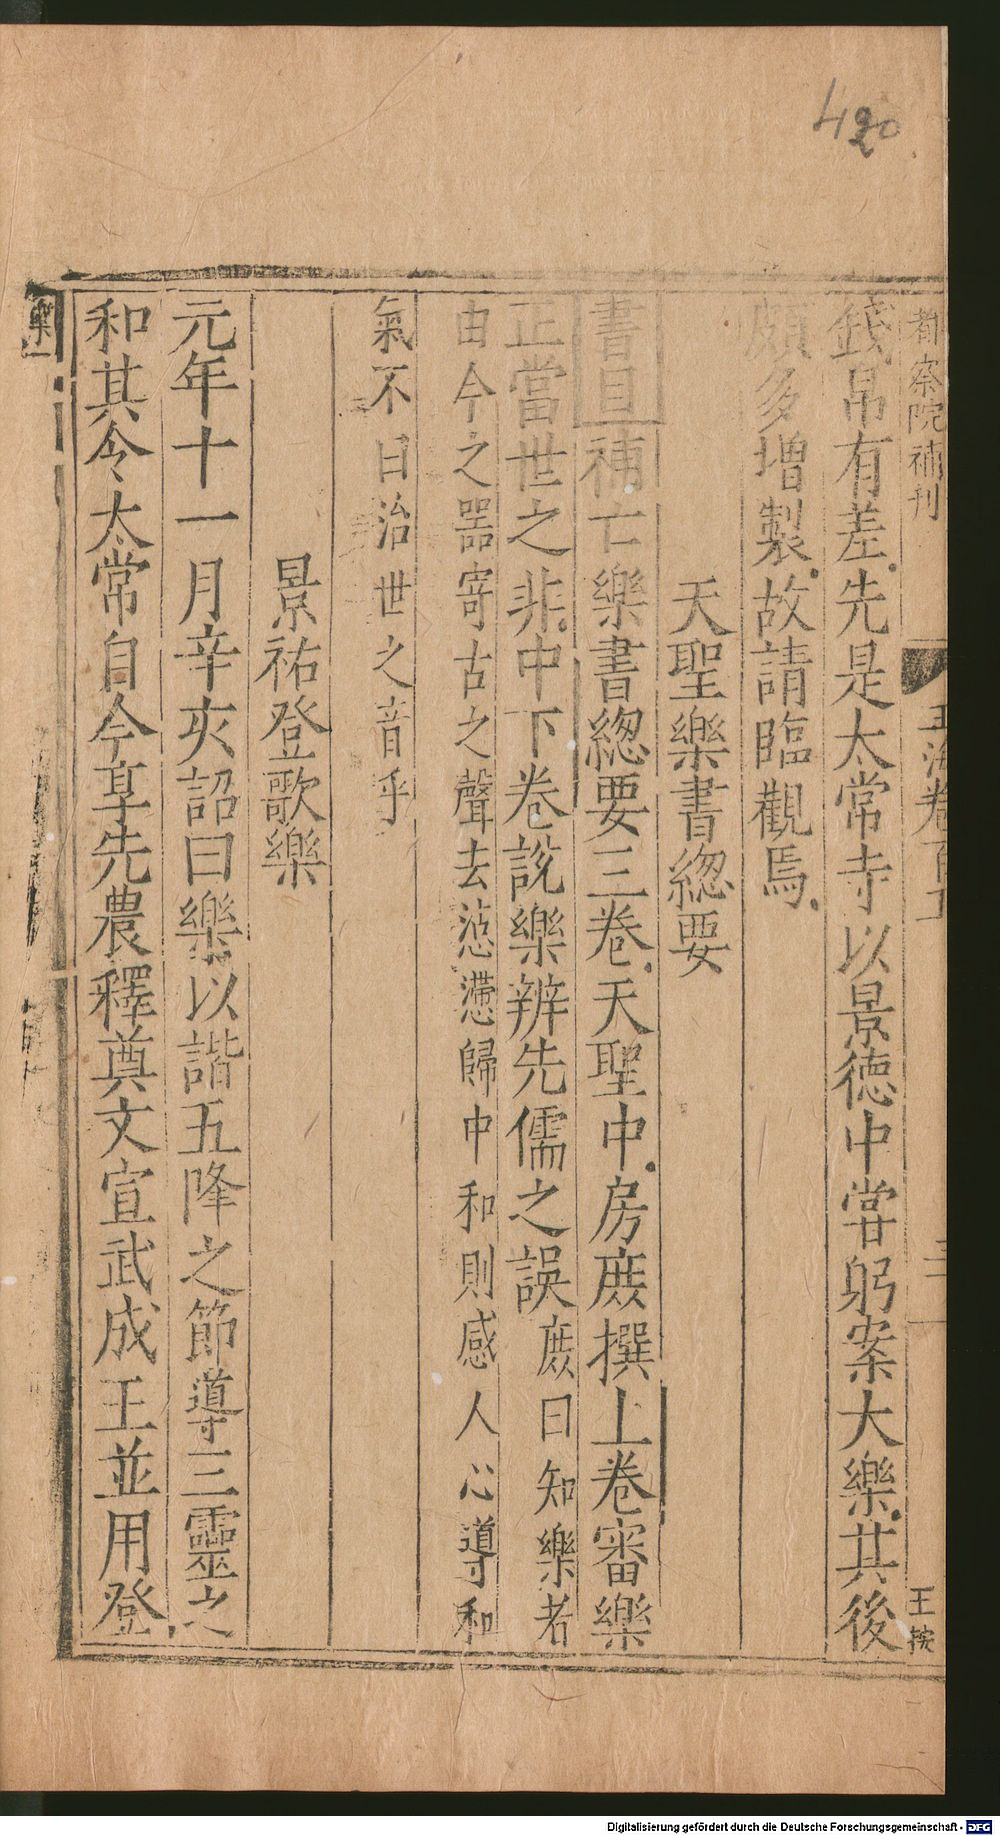 420
都察院補刋
玉海卷百五
三
王按
錢帛有差先是太常寺以景德中甞躬案大樂其後
頗多增製故請臨觀焉
天聖樂書緫要
書目補亡樂書緫要三卷天聖中房庶撰上卷審樂
正當世之非中下卷說樂辨先儒之誤庶曰知樂者
由今之器寄古之聲去惉懘歸中和則感人心導和
氣不曰治世之音乎
景祐登歌樂
元年十一月辛亥詔曰樂以諧五降之節導三靈之
和其令太常自今享先農釋奠文宣武成王並用登
Digitalisierung gefördert durch die Deutsche Forschungsgemeinschaft - DFG